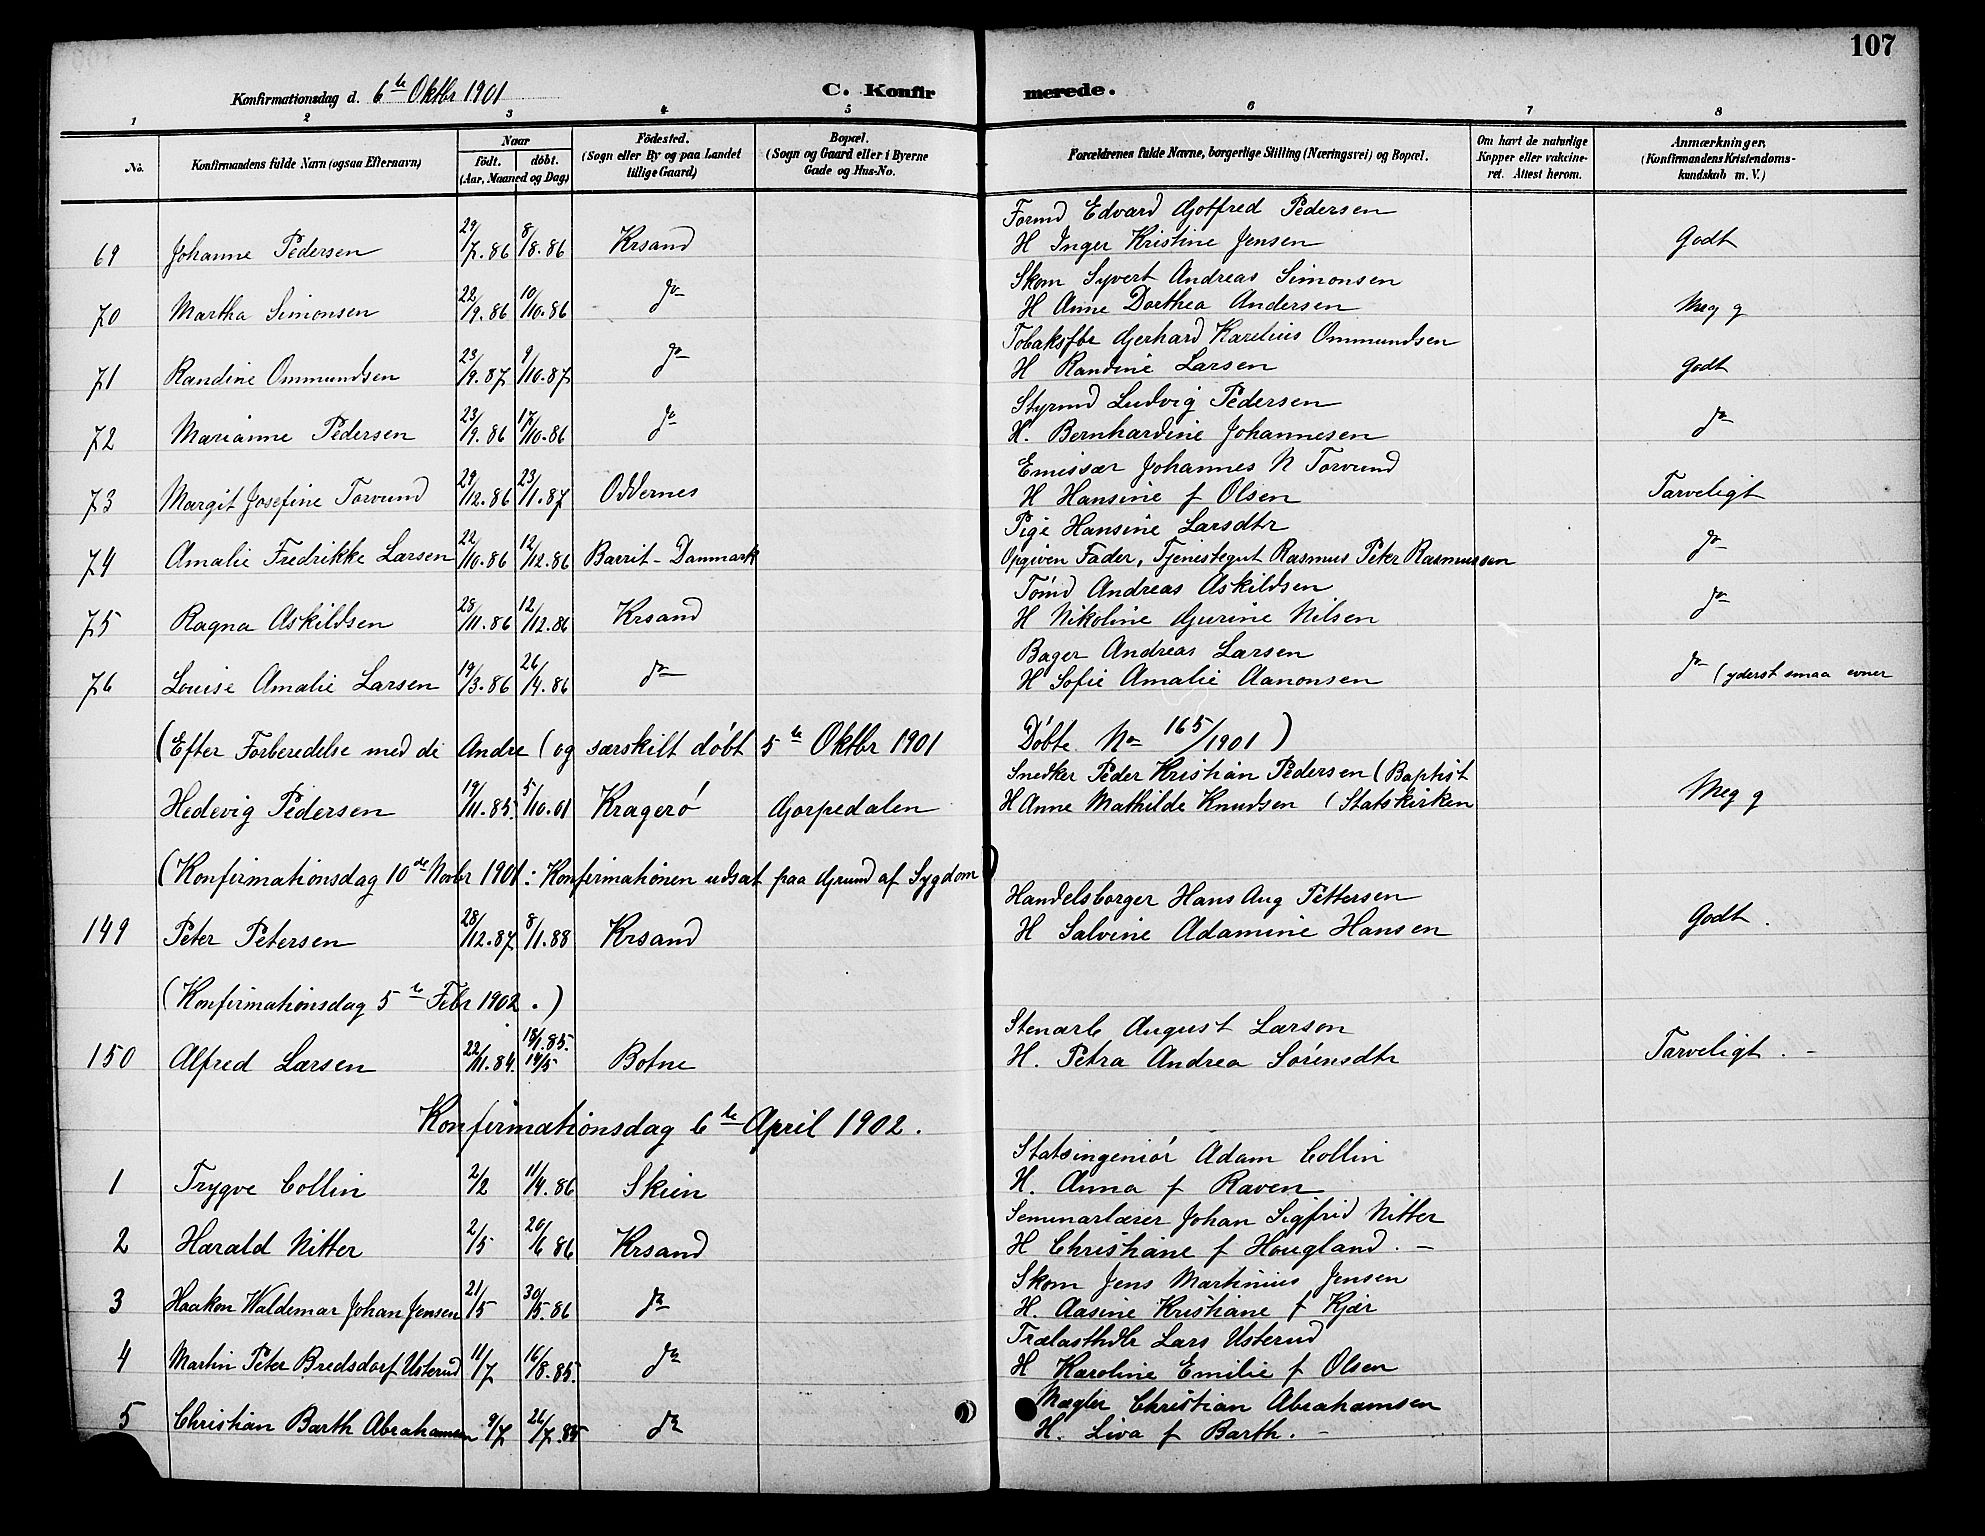 107
Konfirmationsdag d. 6te Oktbr 1901 C. Konfirmerede.
1 2 3 4 5 6 7 8
No. Konfirmandens fulde Navn (ogsaa Efternavn) Naar født. døbt. (Aar, Maaned og Dag) Födested. (Sogn eller By og paa Landet tillige Gaard) Bopæl. (Sogn og Gaard eller i Byerne Gade og Hus-No. Forældrenes fulde Navne, borgerlige Stilling (Næringsvei) og Bopæl. Om havt de naturlige Kopper eller vakcineret. Attest herom. Anmærkninger, (Konfirmandens Kristendomskundskab m. V.)
Formd Edvard Gotfred Pedersen
69 Johanne Pedersen 29/7.86 8/8.86 Krsand H Inger Kristine Jensen Godt
Skom Syvert Andreas Simonsen
70 Martha Simonsen 22/9.86 10/10.86 do H Anne Dorthea Andersen Meg g
Tobaksfbr Gerhard Karelius Ommundsen
71 Randine Ommundsen 23/9.87 9/10.87 do H Randine Larsen Godt
Styrmd Ludvig Pedersen
72 Marianne Pedersen 23/9.86 17/10.86 do H. Bernhardine Johannesen do
Emissær Johannes N Torvund
73 Margit Josefine Torvund 29/12.86 23/1.87 Oddernes H Hansine f Olsen Tarveligt
Pige Hansine Larsdtr
74 Amalie Fredrikke Larsen 22/10.86 12/12.86 Barrit - Danmark Opgiven Fader, Tjenestegut Rasmus Peter Rasmussen do
Tømd Andreas Askildsen
75 Ragna Askildsen 28/11.86 12/12.86 Krsand H Nikoline Gurine Nilsen do
Bager Andreas Larsen
76 Louise Amalie Larsen 19/3.86 26/4.86 do H Sofie Amalie Aanonsen do (yderst smaa evner
(Efter Forberedelse med de Andre (og særskilt døbt 5te Oktbr 1901 Døbte No 165/1901)
Snedker Peder Kristian Pedersen (Baptist
Hedevig Pedersen 19/11.85. 5/10.01 Kragerø Gorpedalen H Anne Mathilde Knudsen (Statskirken Meg g
(Konfirmationsdag 10de Novbr 1901: Konfirmationen udsat paa Grund af Sygdom)
Handelsborger Hans Aug Pettersen
149 Peter Petersen 28/12.87 8/1.88 Krsand H Salvine Adamine Hansen Godt.
(Konfirmationsdag 5te Febr 1902.)
Stenarb August Larsen
150 Alfred Larsen 22/11.84. 18/1.85. 14/5 Botne H. Petra Andrea Sørensdtr Tarveligt. -
Konfirmationsdag 6te April 1902.
Statsingeniør Adam Collin
1 Trygve Collin 2/2 11/4.86 Skien H. Anna f Raven
Seminarlærer Johan Sigfrid Nitter
2 Harald Nitter 2/5 20/6 86 Krsand H Christiane f Hougland. -
Skom Jens Martinius Jensen
3 Haakon Waldemar Johan Jensen 21/5 30/5.86 do H. Aasine Kristiane f Kjær
Trælasthdlr Lars Usterud
4 Martin Peter Bredsdorf Usterud 11/7 16/8.85. do H Karoline Emilie f Olsen
Mægler Christian Abrahamsen
5 Christian Barth Abrahamsen 9/7 26/7.85 do H. Liva f Barth. -